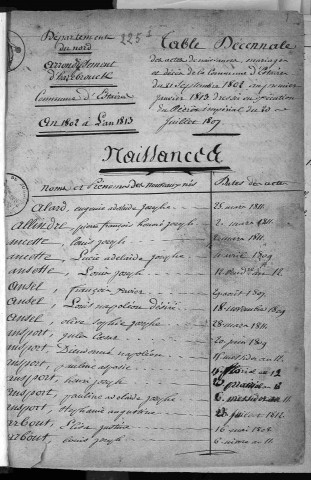 Département
du nord
arrondissement
d'hazebrouck
Commune d'Estaires
An 1802 à l'an 1813
225
Table Décennale
des actes de naissances, mariages
et décès de la Commune d'Estaires
du 21 Septembre 1802 au premier
janvier 1813 dressé en exécution
du Décret impérial du 20
juillet 1807
Naissances
noms et prénoms des nouveaux nés
Dates des actes
Alard, eugenie adelaide josephe 25 mars 1811.
Allindre, pierre françois honoré joseph 2 mars 1811.
ancotte, Louis joseph mars 1811.
ancotte, Lucie adelaide josephe avril 1809
ansotte, Louis joseph an 12.
ansel, françois xavier 29 août 1807.
ansel, Louis napoléon désiré 18 novembre 1809
ansel, olive sophie josephe 28 mars 1811.
ansport, jules César 20 juin 1809
ansport, Dieudonné napoléon an 11.
ansport, pauline aspasie floréal an 12
ansport, henri joseph prairial an 13
ansport, pauline adelaide josephe 6 messidor an 11
ansport, Stephanie augustine 28 juillet 1812.
arbout, Elise justine 16 mai 1808
arbout, Louis joseph 6 nivose an 11.